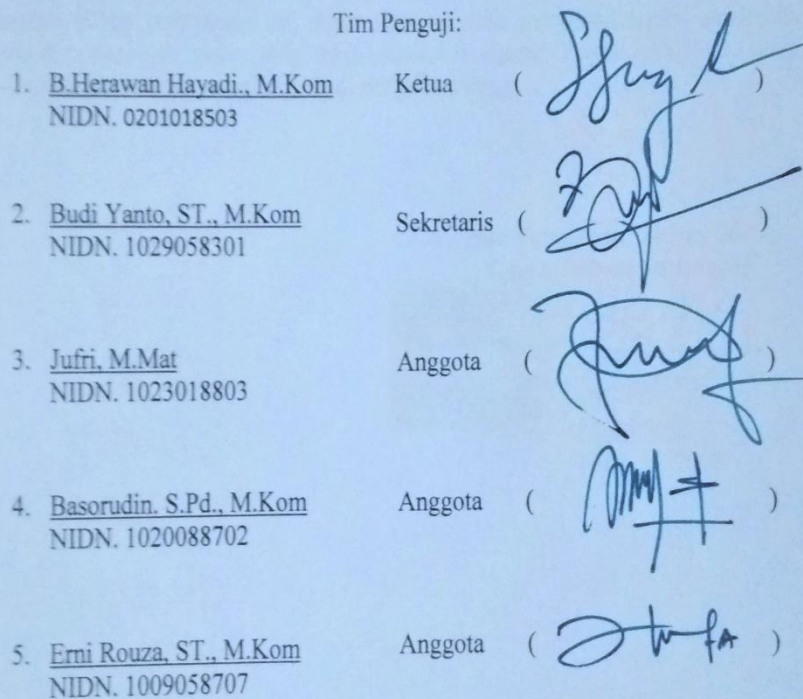 Tim Penguji:
1. B.Herawan Hayadi., M.Kom Ketua ( )
NIDN. 0201018503
2. Budi Yanto, ST., M.Kom Sekretaris ( )
NIDN. 1029058301
3. Jufri, M.Mat Anggota ( )
NIDN. 1023018803
4. Basorudin. S.Pd., M.Kom Anggota ( )
NIDN. 1020088702
5. Erni Rouza, ST., M.Kom Anggota ( )
NIDN. 1009058707